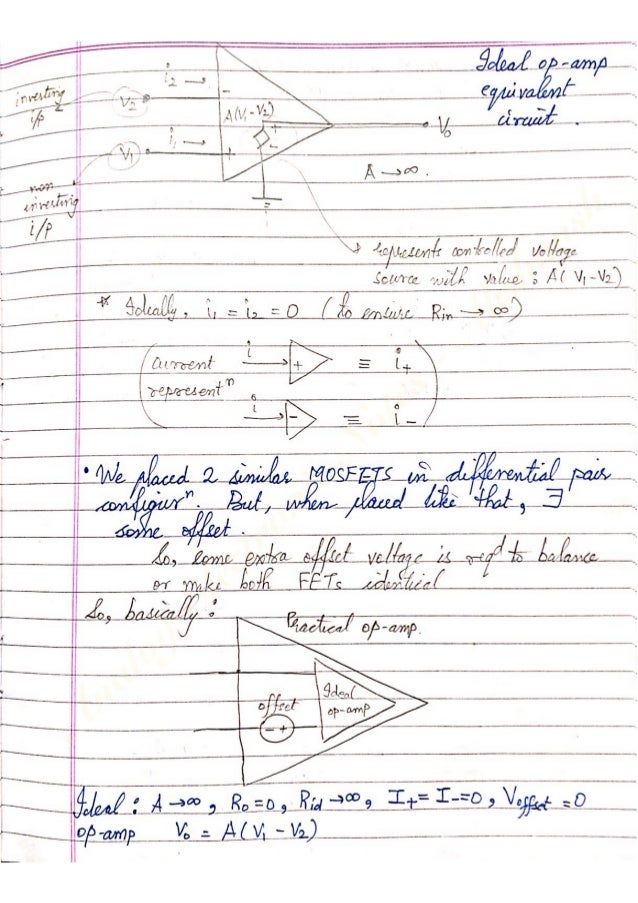 Ideal op-amp
equivalent
circuit.
inverting
i/p
V2
i2
-
A(V1-V2)
+
-
Vo
V1
i1
+
A→∞.
non
inverting
i/p
represents controlled voltage
source with value : A(V1-V2)
* Ideally, i1 = i2 = 0 (to ensure Rin → ∞)
(current
representⁿ
i → + ≡ i+
i → - ≡ i-)
• We placed 2 similar MOSFETS in differential pair
configurⁿ. But, when placed like that, ∃
some offset.
So, some extra offset voltage is reqd to balance
or make both FETs identical
So, basically :
Practical op-amp.
Ideal
op-amp
offset
- +
Ideal : A→∞, Ro=0, Rid→∞, I+=I-=0, Voffset=0
op-amp Vo = A(V1-V2)